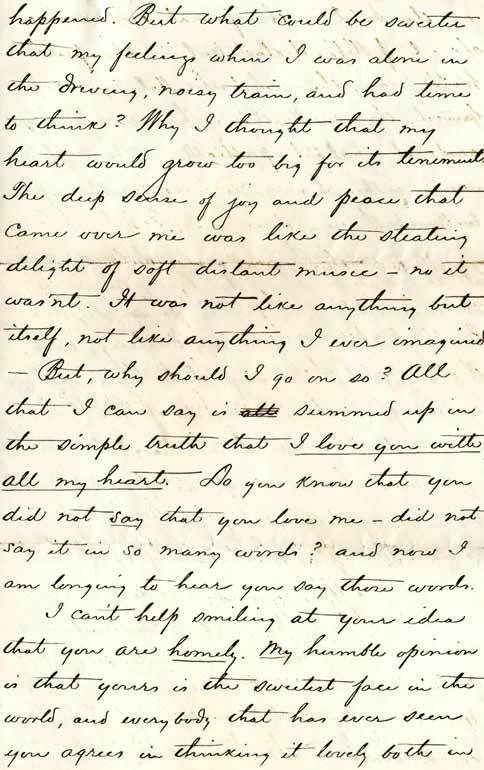 happened. But what could be sweeter
that my feelings when I was alone in
the driving, noisy train, and had time
to think? Why I thought that my
heart would grow too big for its tenement.
The deep sense of joy and peace that
came over me was like the stealing
delight of soft distant music – no it
was'nt. It was not like anything but
itself, not like anything I ever imagined
– But, why should I go on so? All
that I can say is all summed up in
the simple truth that I love you with
all my heart. Do you know that you
did not say that you love me – did not
say it in so many words? and now I
am longing to hear you say those words.
I can't help smiling at your idea
that you are homely. My humble opinion
is that yours is the sweetest face in the
world, and everybody that has ever seen
you agrees in thinking it lovely both in